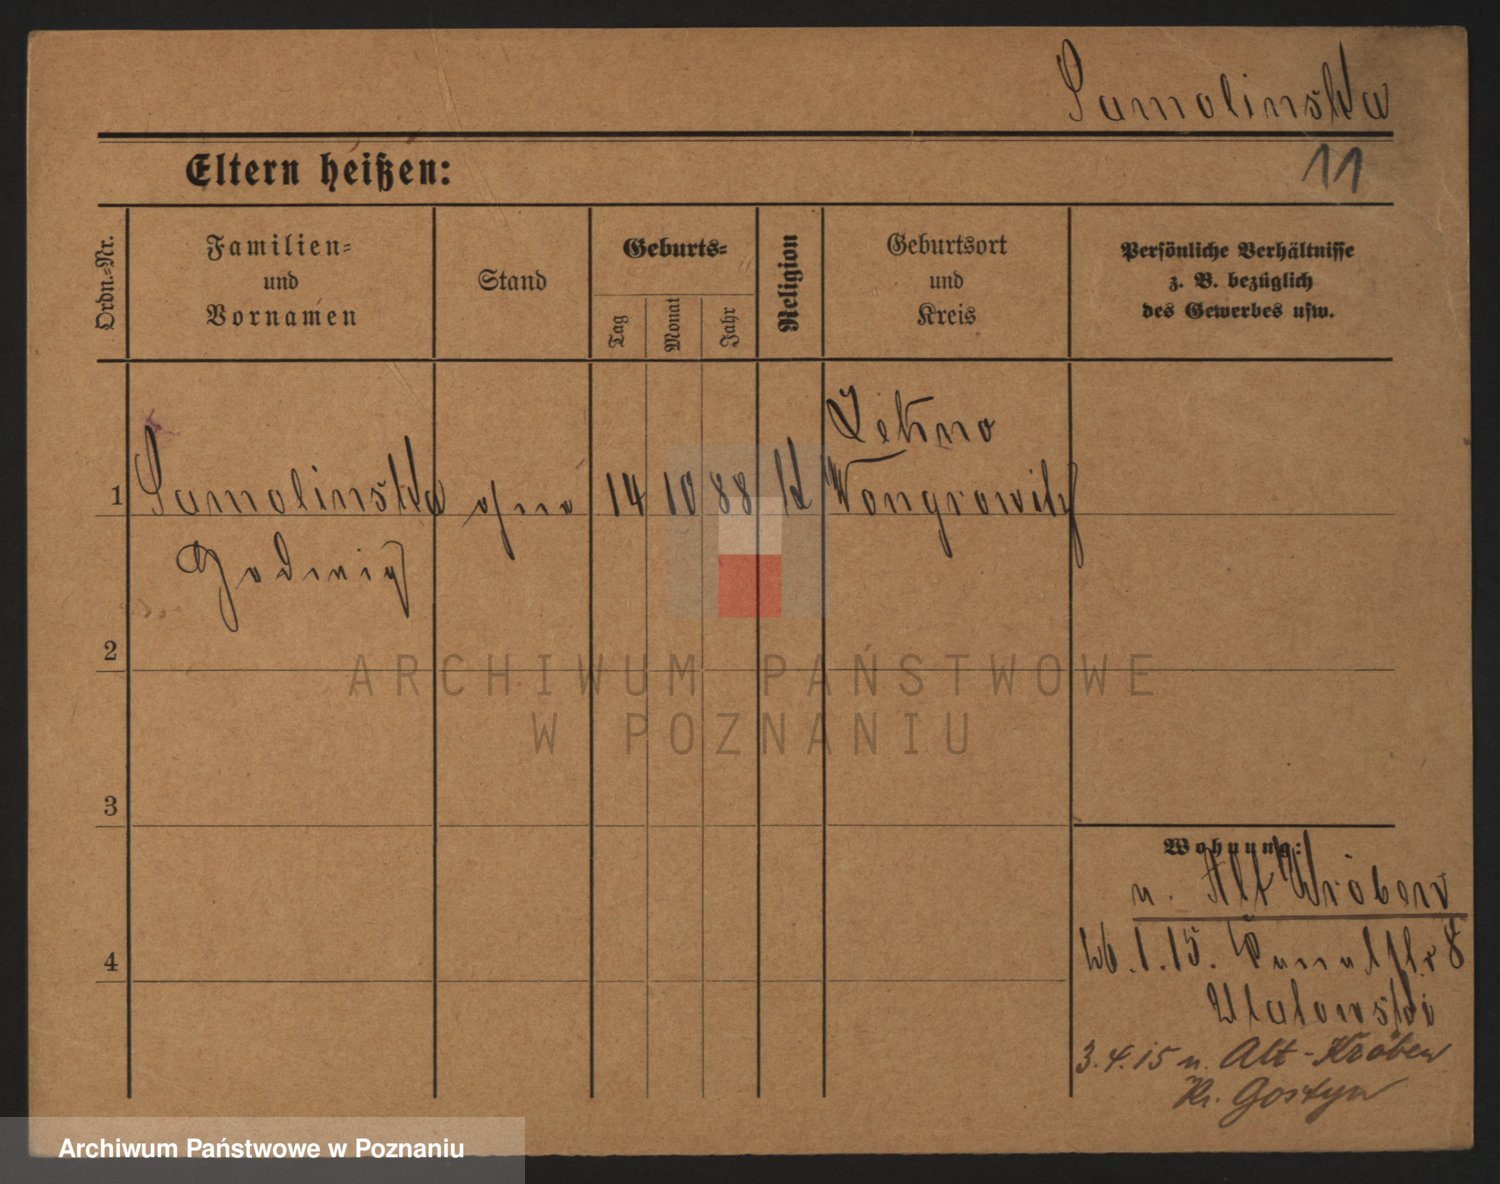 Samolinska
Eltern heißen:
11
Ordn.-Nr.
Familien-
und
Vornamen
Stand
Geburts-
Tag
Monat
Jahr
Religion
Geburtsort
und
Kreis
Persönliche Verhältnisse
z. B. bezüglich
des Gewerbes usw.
1
Samolinska
Hedwig
ohne
14
10
88
k
Lekno
Wongrowitz
2
3
4
Wohnung:
n. Alt Kröben
26.1.15. Kanalstr 8
Ulatowski
3.4.15 n. Alt-Kröben
Kr. Gostyn
ARCHIWUM PAŃSTWOWE
W POZNANIU
Archiwum Państwowe w Poznaniu